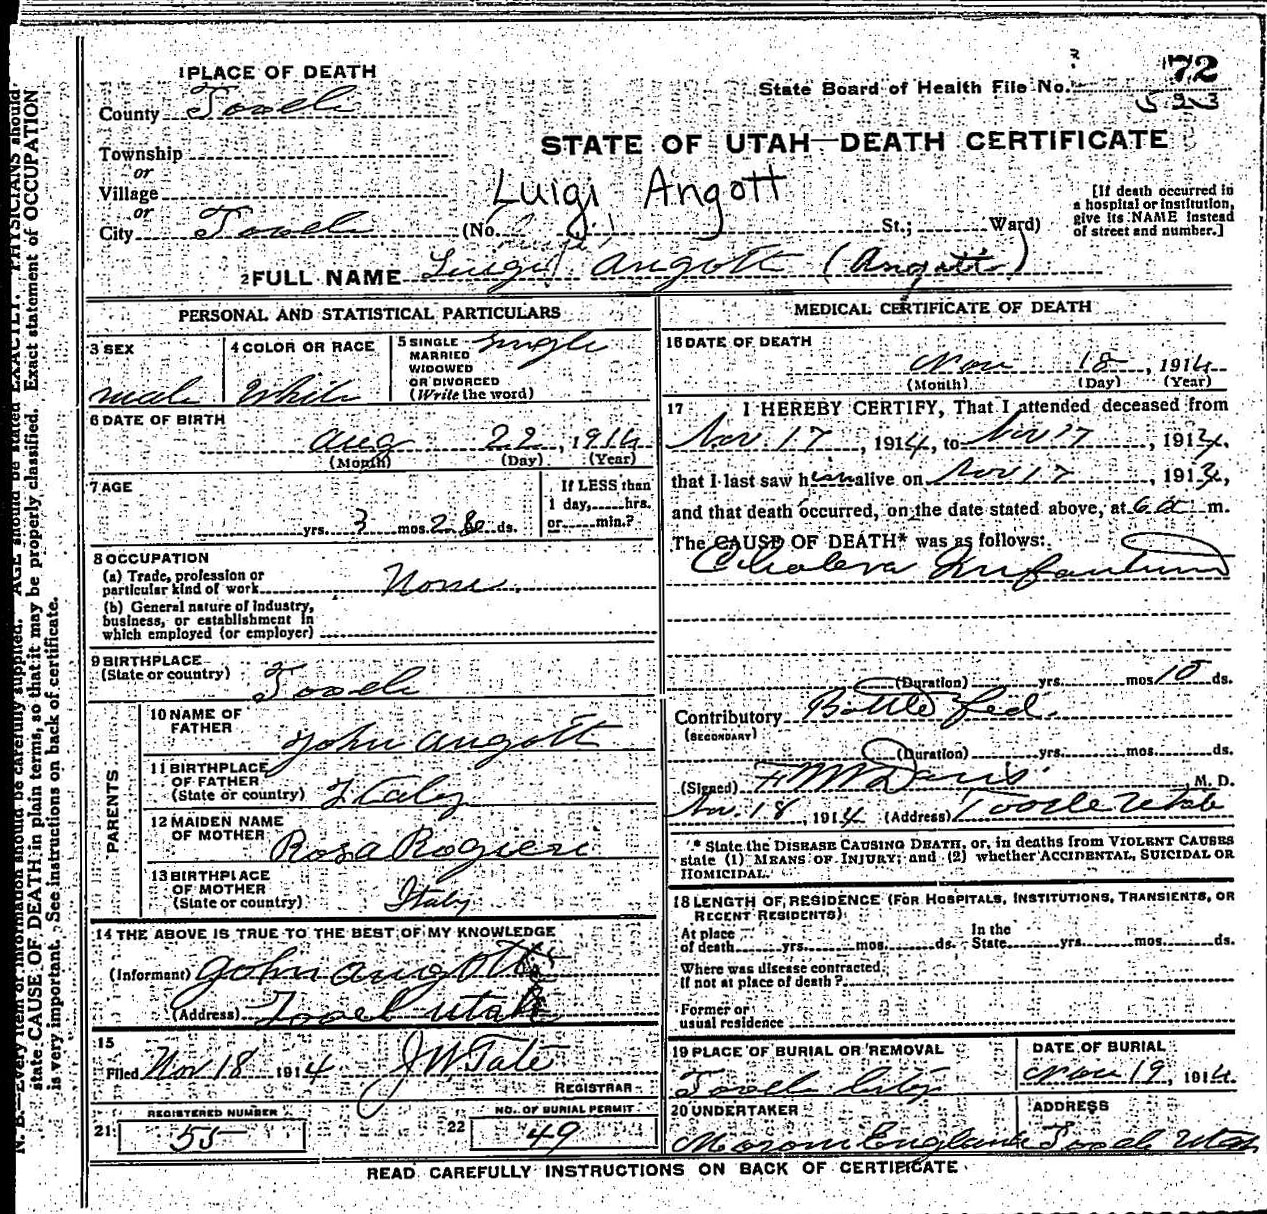 1 PLACE OF DEATH
72
State Board of Health File No.
523
County Tooele
STATE OF UTAH—DEATH CERTIFICATE
Township
or
Village
Luigi Angott
[If death occurred in
a hospital or institution,
give its NAME instead
of street and number.]
or
City Tooele (No. St.; Ward)
2 FULL NAME Luigi Angott (Angott)
PERSONAL AND STATISTICAL PARTICULARS
3 SEX
male
4 COLOR OR RACE
White
5 SINGLE
MARRIED
WIDOWED
OR DIVORCED
(Write the word)
Single
6 DATE OF BIRTH
Aug 22, 1914
(Month) (Day) (Year)
7 AGE
yrs. 3 mos. ds.
If LESS than
1 day, hrs.
or min.?
8 OCCUPATION
(a) Trade, profession or
particular kind of work None
(b) General nature of industry,
business, or establishment in
which employed (or employer)
9 BIRTHPLACE
(State or country) Tooele
PARENTS
10 NAME OF
FATHER John Angott
11 BIRTHPLACE
OF FATHER
(State or country) Italy
12 MAIDEN NAME
OF MOTHER Rosa Rogieri
13 BIRTHPLACE
OF MOTHER
(State or country) Italy
14 THE ABOVE IS TRUE TO THE BEST OF MY KNOWLEDGE
(Informant) John Angott
(Address) Tooel Utah
15
Filed Nov 18 1914 J W Tate
REGISTRAR
REGISTERED NUMBER
21 55
NO. OF BURIAL PERMIT
22 49
MEDICAL CERTIFICATE OF DEATH
16 DATE OF DEATH
Nov 18, 1914
(Month) (Day) (Year)
17 I HEREBY CERTIFY, That I attended deceased from
Nov 17, 1914, to Nov 17, 1914,
that I last saw him alive on Nov 17, 1914,
and that death occurred, on the date stated above, at 6 a m.
The CAUSE OF DEATH* was as follows:
Cholera Infantum
(Duration) yrs. mos. 10 ds.
Contributory Bottle fed.
(SECONDARY)
(Duration) yrs. mos. ds.
(Signed) F M Davis M. D.
Nov. 18, 1914 (Address) Tooele Utah
* State the DISEASE CAUSING DEATH, or, in deaths from VIOLENT CAUSES
state (1) MEANS OF INJURY; and (2) whether ACCIDENTAL, SUICIDAL OR
HOMICIDAL.
18 LENGTH OF RESIDENCE (FOR HOSPITALS, INSTITUTIONS, TRANSIENTS, OR
RECENT RESIDENTS)
At place
of death yrs. mos. ds.
In the
State yrs. mos. ds.
Where was disease contracted,
if not at place of death?
Former or
usual residence
19 PLACE OF BURIAL OR REMOVAL
Tooel City
DATE OF BURIAL
Nov 19, 1914
20 UNDERTAKER
Moroni England
ADDRESS
Tooel Utah
READ CAREFULLY INSTRUCTIONS ON BACK OF CERTIFICATE
N. B.—Every item of information should be carefully supplied. AGE should be stated EXACTLY. PHYSICIANS should
state CAUSE OF DEATH in plain terms, so that it may be properly classified. Exact statement of OCCUPATION
is very important. See instructions on back of certificate.